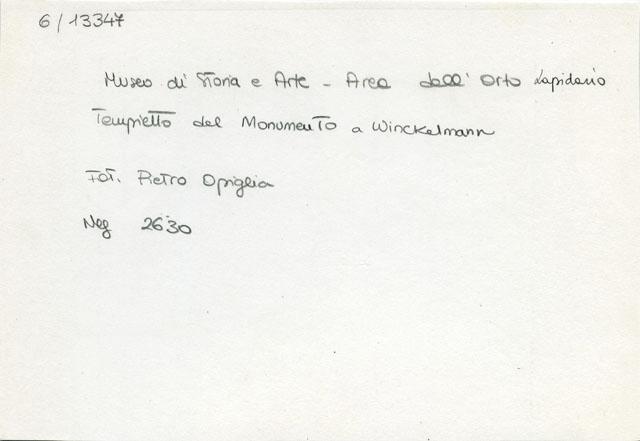 6/13347
Museo di Storia e Arte - Area dell' Orto Lapidario
Tempietto del Monumento a Winckelmann
Fot. Pietro Opiglia
Neg 2630